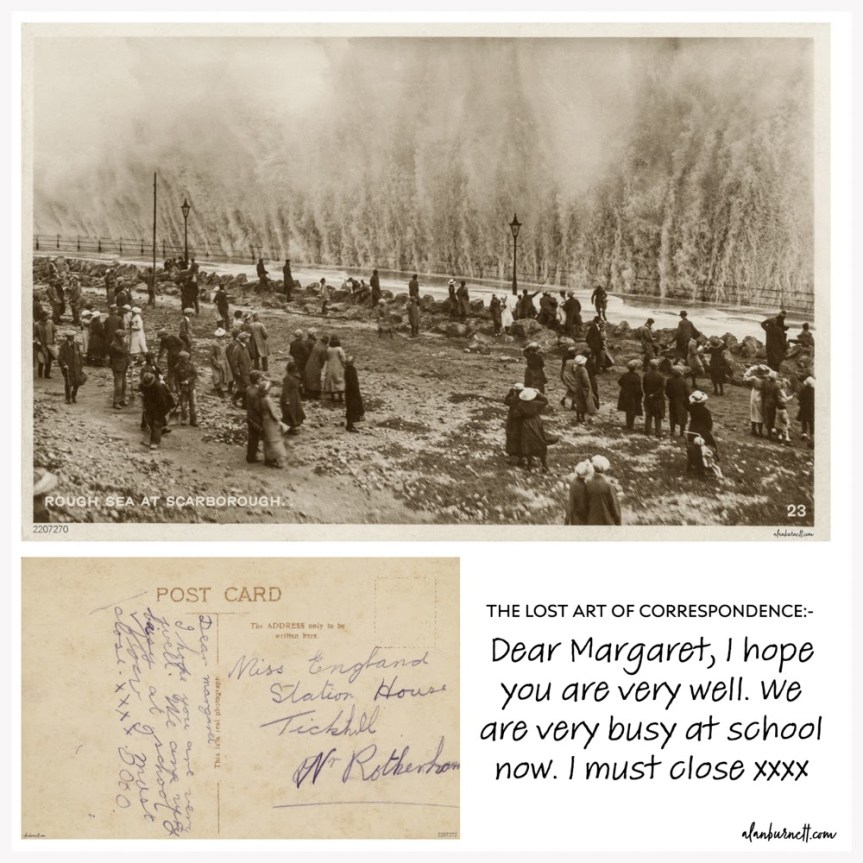 ROUGH SEA AT SCARBOROUGH.
23
2207270
alanburnett.com
POST CARD
The ADDRESS only to be
written here.
This is a real photograph.
Dear Margaret
I hope you are very
well. We are very
busy at school
now I must
close. xxxx
Miss England
Station House
Tickhill
Nr Rotherham
2207272
THE LOST ART OF CORRESPONDENCE:-
Dear Margaret, I hope
you are very well. We
are very busy at school
now. I must close xxxx
alanburnett.com